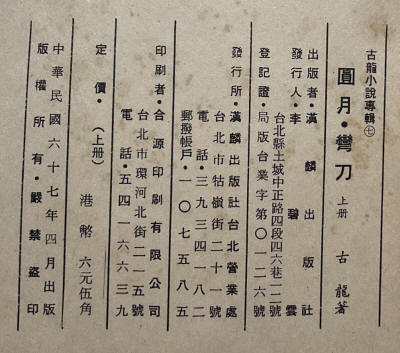 古龍小說專輯㊆
圓月·彎刀 上册 古龍著
出版者·漢麟出版社
發行人·李碧雲
台北縣土城中正路四段四六巷一二號
登記證·局版台業字第〇一二六號
發行所·漢麟出版社台北營業處
台北市牯嶺街二十一號
電話·三九三四一八二
郵撥帳戶·一〇七五八五
印刷者·合源印刷有限公司
台北市環河北街二一五號
電話·五四一六六三九
定價·(上册) 港幣 六元伍角
中華民國六十七年四月出版
版權所有·嚴禁盜印